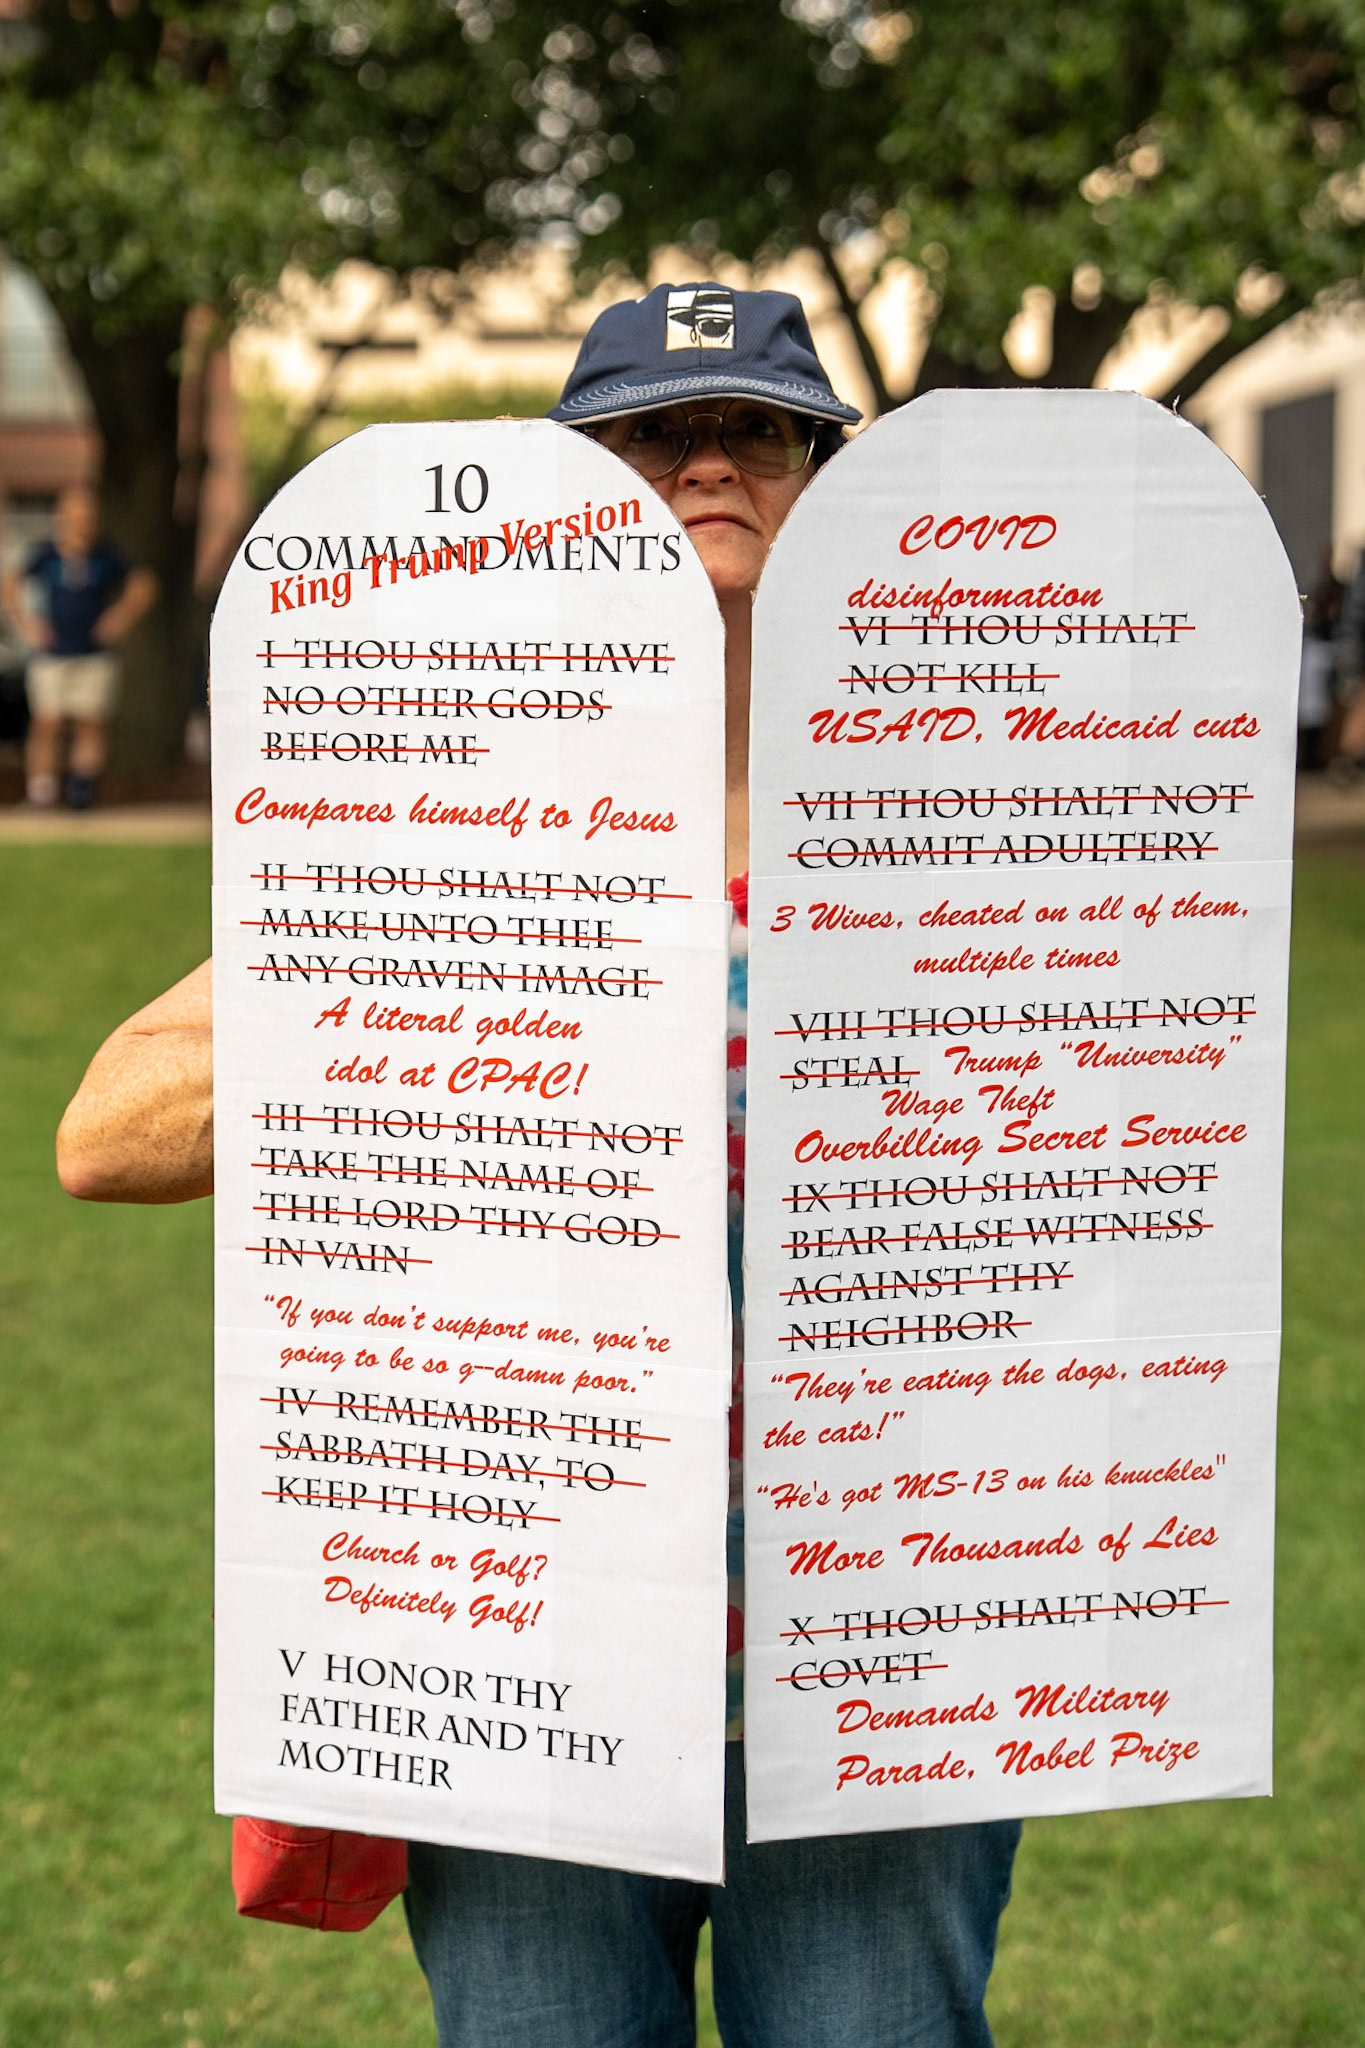 10
COMMANDMENTS
King Trump Version
I THOU SHALT HAVE
NO OTHER GODS
BEFORE ME
Compares himself to Jesus
II THOU SHALT NOT
MAKE UNTO THEE
ANY GRAVEN IMAGE
A literal golden
idol at CPAC!
III THOU SHALT NOT
TAKE THE NAME OF
THE LORD THY GOD
IN VAIN
“If you don't support me, you're
going to be so g--damn poor.”
IV REMEMBER THE
SABBATH DAY, TO
KEEP IT HOLY
Church or Golf?
Definitely Golf!
V HONOR THY
FATHER AND THY
MOTHER
COVID
disinformation
VI THOU SHALT
NOT KILL
USAID, Medicaid cuts
VII THOU SHALT NOT
COMMIT ADULTERY
3 Wives, cheated on all of them,
multiple times
VIII THOU SHALT NOT
STEAL Trump “University”
Wage Theft
Overbilling Secret Service
IX THOU SHALT NOT
BEAR FALSE WITNESS
AGAINST THY
NEIGHBOR
“They're eating the dogs, eating
the cats!”
“He's got MS-13 on his knuckles"
More Thousands of Lies
X THOU SHALT NOT
COVET
Demands Military
Parade, Nobel Prize